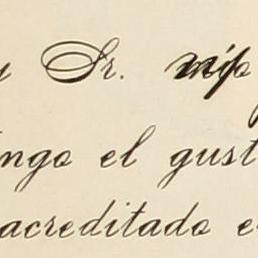 y Sr. mío
engo el gust
acreditado e